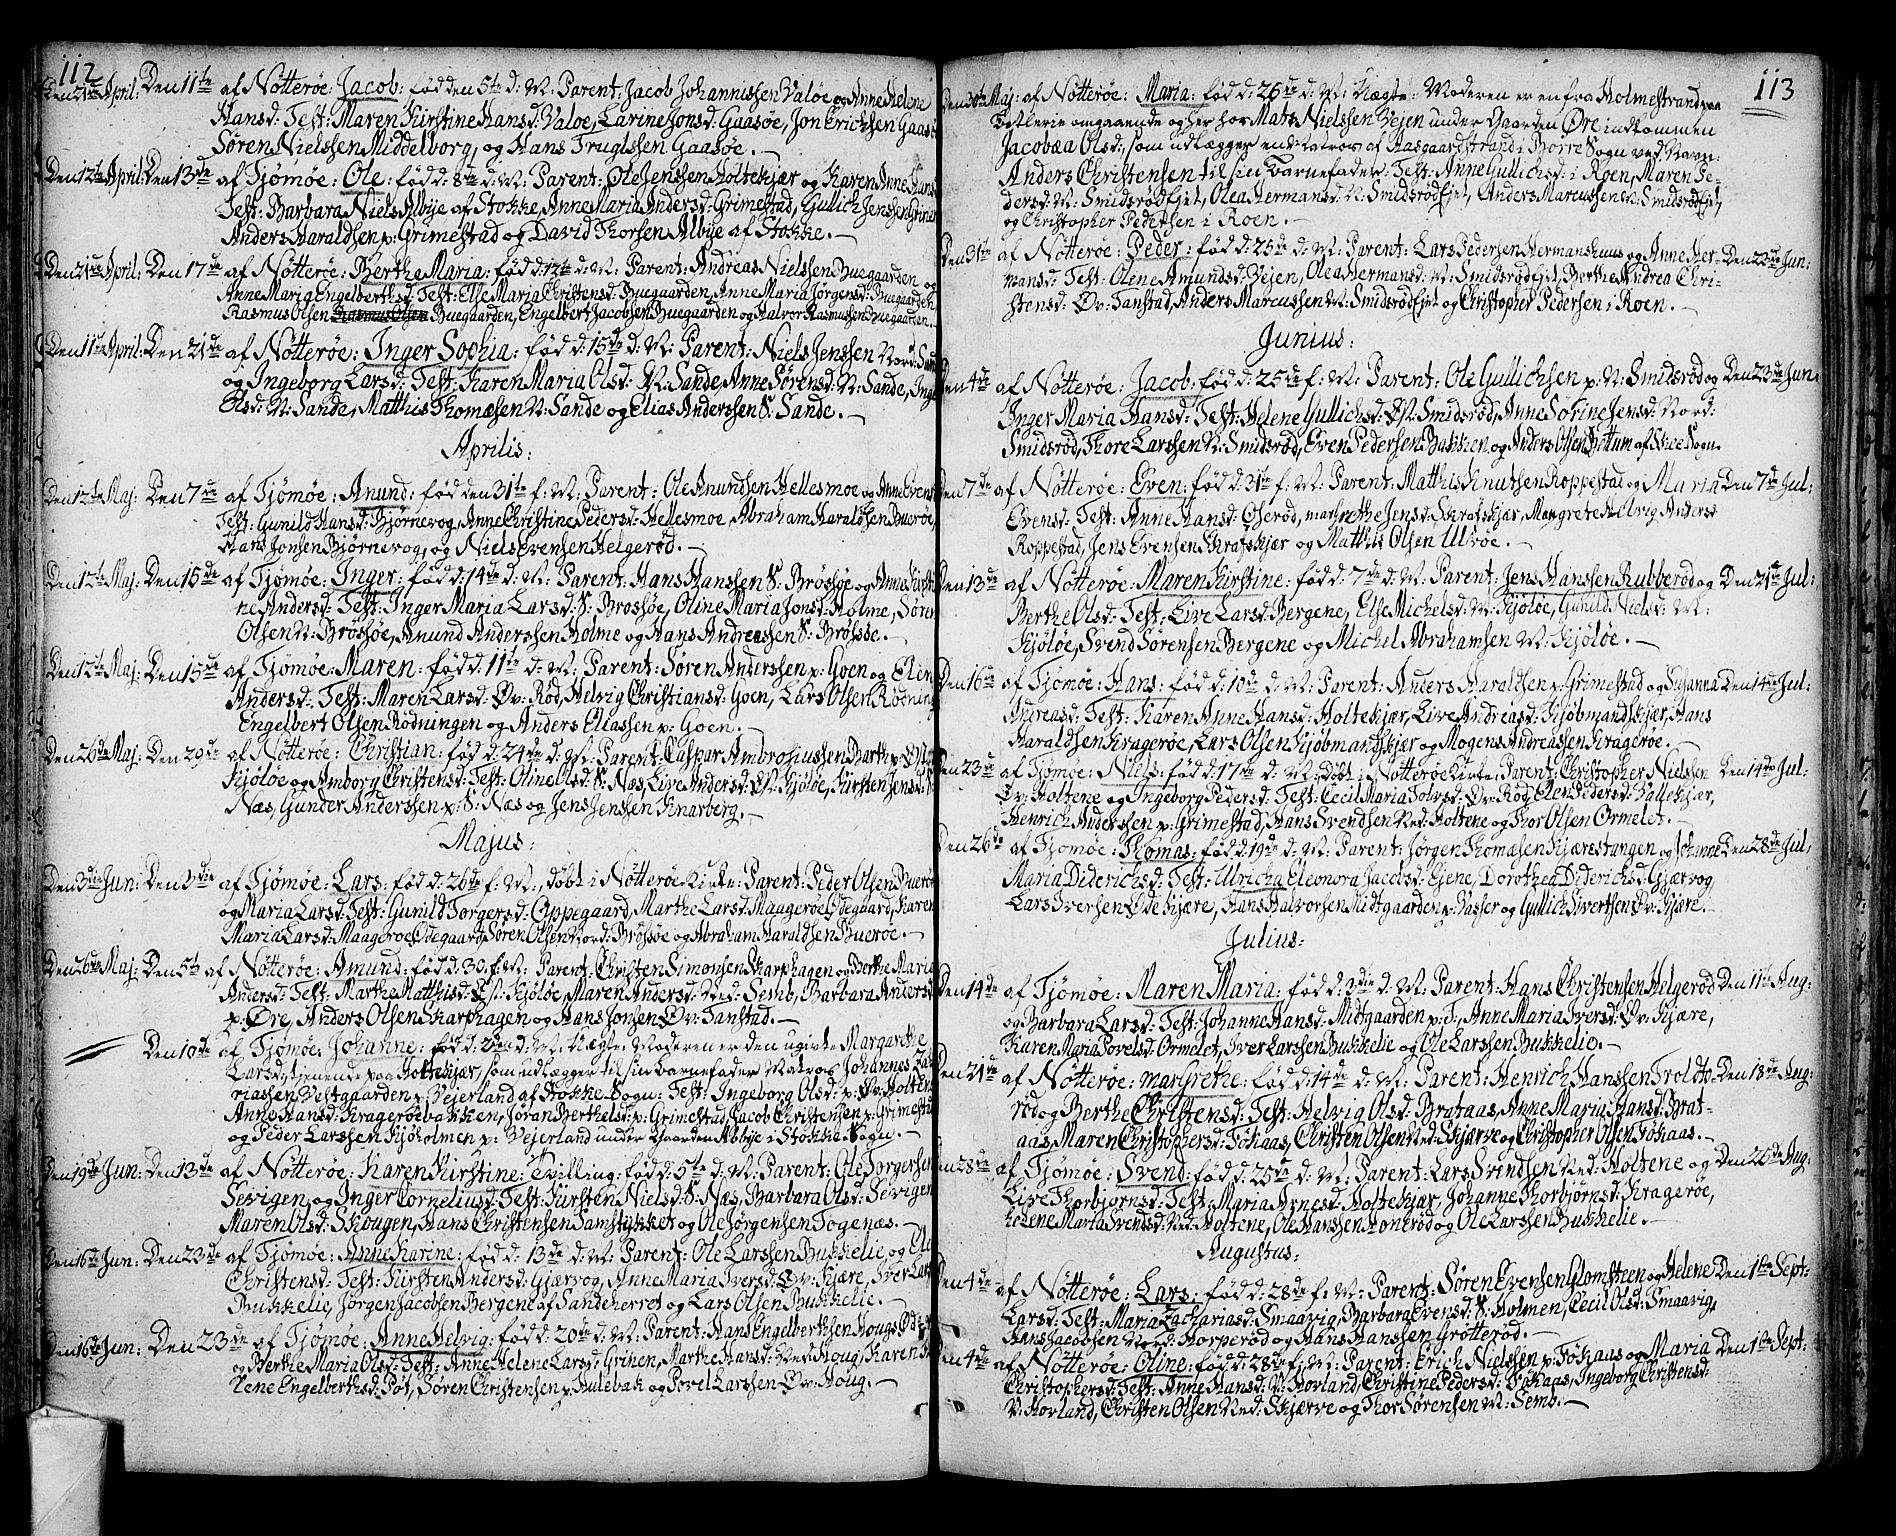 112
Den 21de April: Den 11te af Nötterøe: Jacob: fød den 5te d: M: Parent: Jacob Johannissen Valøe og Anne Helene
Hansd: Test: Maren Kirstine Hansd: Valøe, Larine Jonsd: Gaasøe, Jon Erichsen Gaasøe
Søren Nielssen Middelborg, og Hans Truglssen Gaasøe.
Den 12te April: Den 13de af Tjømøe: Ole: fød d: 8de d: M: Parent: Ole Jenssen Holtekjær og Karen Anne Hans
Test: Barbara Niels Albye af Stokke, Anne Maria Andersd: Grimestad, Gullich Jenssen Grimes
Anders Haraldsen p: Grimestad og David Thorsen Albye af Stokke.
Den 21de April: Den 17de af Nötterøe: Berthe Maria: fød d: 12te d: M: Parent: Andreas Nielssen Buegaarden og
Anne Maria Engelberthsd: Test: Else Maria Christensd: Buegaarden, Anne Maria Jørgensd: Buegaarden
Rasmus Olsen Rasmus Olsen Buegaarden, Engelbert Jacobsen Buegaarden og Halvor Rasmussen Buegaarden.
Den 11te April: Den 21de af Nötterøe: Inger Sophia: fød d: 15de d: M: Parent: Niels Jenssen Nord: Sand
og Ingeborg Larsd: Test: Karen Maria Olsd: N: Sande, Anne Sørensd: N: Sande, Inge
Olsd: N: Sande, Matthis Thomæsen N: Sande og Elias Anderssen S: Sande.
Aprilis:
Den 12te Maj: Den 7de af Tjømøe: Anund: fød den 31te f: M: Parent: Ole Anundsen Hellesmoe og Anne Evens
Test: Gunild Hansd: Bjørnevog, Anne Christine Pedersd: Hellesmoe, Abraham Haraldsen Buerøe,
Hans Jonsen Bjørnevog, og Niels Evensen Helgerød.
Den 12te Maj: Den 15de af Tjømøe: Inger: fød d: 14de d: M: Parent: Hans Hanssen S: Brøsøe og Anna Kirsti
ne Andersd: Test: Inger Maria Larsd: S: Brosøe, Oline Maria Jonsd: Holme, Søren
Olsen N: Brøsøe, Anund Anderssen Holme og Hans Andreassen S: Brøsøe.
Den 12te Maj: Den 15de af Tjømøe: Maren: fød d: 11te d: M: Parent: Søren Anderssen p: Goen og Elen
Andersd: Test: Maren Larsd: Øv: Rød, Helvig Christiansd: Goen, Lars Olsen Rødning
Engelbert Olsen Rødningen og Anders Eliassen p: Goen.
Den 26de Maj: Den 29de af Nötterøe: Christian: fød d: 24de d: M: Parent: Caspar Ambrosiussen Barth p: Øst
Kjøløe og Amborg Christensd: Test: Oline Olsd: S: Næs, Live Andersd: Øst: Kjøløe, Kirsten Jensd: S
Næs, Gunder Anderssen p: S: Næs og Jens Jenssen Knarberg.
Majus:
Den 3die Jun: Den 3die af Tjømøe: Lars: fød d: 26de f: M:, døbt i Nötterøe Kirke: Parent: Peder Olsen Buerøe
og Maria Larsd: Test: Gunild Torgersd: Oppegaard, Marthe Larsd: Maagerøe Ødegaard, Karen
Maria Larsd: Maagerøe Ødegaard, Søren Olsen Nord: Brøsøe og Abraham Haraldsen Buerøe.
Den 26de Maj: Den 5te af Nötterøe: Amund: fød d: 30. f: M: Parent: Christen Simonsen Skarphagen og Berthe Maria
Andersd: Test: Marthe Matthisd: Øst: Kjøløe, Maren Andersd: Ned: Semb, Barbara Andersd
p: Øre, Anders Olsen Skarphagen og Hans Jonsen Øv: Tanstad.
Den 10de af Tjømøe: Johanne: fød d: 2den d: M: Uægte: Moderen er den ugivte Margarethe
Larsd:, tjenende paa Holtekjær, som udlægger til sin Barnefader Matros Johannes Zacha
riassen Vestgaarden p: Vejerland af Stokke Sogn: Test: Ingeborg Olsd: p: Øv: Holtene
Anne Hansd: Kragerøebakken, Jøran Berthelsd: p: Grimestad, Jacob Christensen p: Grimestad
og Peder Larssen Kjøholmen p: Vejerland under Gaarden Albye i Stokke Sogn.
Den 19de Jun: Den 13de af Nötterøe: Karen Kirstine: Tvilling: fød d: 5te d: M: Parent: Ole Torgersen
Sevigen, og Inger Corneliusd: Test: Kirsten Nielsd: S: Næs, Barbara Olsd: Sevigen
Maren Olsd: Skougen, Hans Christensen Tamstykket og Ole Jørgensen Togenæs.
Den 16de Jun: Den 23de af Tjømøe: Anne Karine: fød d: 13de d: M: Parent: Ole Larssen Bukkelie og Ole
Christensd: Test: Kirsten Andersd: Gjærvog, Anne Maria Iversd: Øv: Kjære, Iver Lars
Bukkelie, Jørgen Jacobsen Bergene af Sandeherret og Lars Olsen Bukkelie.
Den 16de Jun: Den 23de af Tjømøe: Anne Helvig: fød d: 20de d: M: Parent: Hans Engelberthsen Hougs Øde
og Berthe Maria Olsd: Test: Anne Helene Larsd: Grinen, Marthe Hansd: Ned: Houg, Karen
Lene Engelberthsd: Pøt, Søren Christensen p: Hulebak og Povel Larssen Øv: Houg.
113
Den 30te Maj: af Nötterøe: Maria: fød d: 26de d: M: Uægte: Moderen er en fra Holmestrand paa
Betlerie omgaaende og her hos Mats Nielssen Vejen under Gaarden Øre indkommen
Jacobæa Olsd:, som udlægger en Matros af Aasgaardstrand i Borre Sogn ved Navn:
Anders Christensen til sin Barnefader: Test: Anne Gullichsd: i Roen, Maren Pe-
dersd: N: Smidsrødejet, Olea Hermansd: N: Smidsrødejet, Anders Marcussen N: Smidsrødejet,
og Christopher Pedersen i Roen.
Den 31te af Nötterøe: Peder: fød d: 25de d: M: Parent: Lars Pedersen Hermanshuus og Anne Her- Den 23de Jun:
mansd: Test: Olene Amundsd: Vejen, Olea Hermansd: N: Smidsrødejet, Berthe Andrea Chri-
stensd: Øv: Tanstad, Anders Marcussen N: Smidsrødejet og Christopher Pedersen i Roen.
Junius:
Den 4de af Nötterøe: Jacob: fød d: 25de f: M: Parent: Ole Gullichsen p: N: Smidsrød og Den 23de Jun:
Inger Maria Hansd: Test: Helene Gullichsd: Øst: Smidsrød, Anne Sorine Jensd: Nord:
Smidsrød, Thore Larssen N: Smidsrød, Even Pedersen Bakken og Anders Olsen Bettum af Skee Sogn.
Den 7de af Nötterøe: Even: fød d: 31te f: M: Parent: Matthis Knutsen Roppestad og Maria Den 7de Jul:
Evensd: Test: Anne Hansd: Oserød, Margrethe Jensd: Skrafskjær, Margrete Helvig Andersd
Roppestad, Jens Evensen Skrafskjær og Matthis Olsen Ulvøe.
Den 13de af Nötterøe: Maren Kirstine: fød d: 7de d: M: Parent: Jens Hanssen Rubberød og Den 21de Jul:
Berthe Olsd: Test: Live Larsd: Bergene, Else Michelsd: N: Kjøløe, Gunild Nielsd: N:
Kjøløe, Svend Sørensen Bergene og Michel Abrahamsen N: Kjøløe.
Den 16de af Tjømøe: Hans: fød d: 10de d: M: Parent: Anders Haraldsen p: Grimestad og Susanna Den 14de Jul:
Andreasd: Test: Karen Anne Hansd: Holtekjær, Live Andreasd: Kjøbmandskjær, Hans
Haraldsen Kragerøe, Lars Olsen Kjøbmandskjær og Mogens Andreassen Kragerøe.
Den 23de af Tjømøe: Niels: fød d: 17de d: M: Døbt i Nötterøe Kirke: Parent: Christopher Nielssen Den 14de Jul:
Øv: Holtene og Ingeborg Pedersd: Test: Cecil Maria Tolvsd: Øv: Rød, Elen Pedersd: Vallekjær,
Henrich Anderssen p: Grimestad, Hans Svendsen Ned: Holtene og Thor Olsen Ormelet.
Den 26de af Tjømøe: Thomas: fød d: 19de d: M: Parent: Jørgen Thomæsen Kjærestangen og Johanne Den 28de Jul:
Maria Diderichsd: Test: Ulricha Eleonora Jacobsd: Ejene, Dorothea Diderichsd: Gjærvog
Lars Iversen Øde Kjære, Hans Halvorsen Midtgaarden p: Vasser og Gullich Sivertsen Øv: Kjære.
Julius:
Den 14de af Tjømøe: Maren Maria: fød d: 3die d: M: Parent: Hans Christensen Helgerød Den 11te Aug:
og Barbara Larsd: Test: Johanne Hansd: Midtgaarden p: F:, Anne Maria Iversd: Øv: Kjære,
Karen Maria Povelsd: Ormelet, Iver Larssen Bukkelie og Ole Larssen Bukkelie.
Den 21de af Nötterøe: Margrethe: fød d: 14de d: M: Parent: Henrich Hanssen Troldto- Den 18de Aug:
rød og Berthe Christensd: Test: Helvig Olsd: Brataas, Anne Maria Hansd: Brat-
aas, Maren Christophersd: Fokaas, Christen Olsen Ned: Skjærve og Christopher Olsen Fokaas.
Den 28de af Tjømøe: Svend: fød d: 25de d: M: Parent: Lars Svendsen Ned: Holtene og Den 26de Aug:
Live Thorbjørnsd: Test: Maria Arnesd: Holtekjær, Johanne Thorbjørnsd: Kragerøe,
Helene Maria Svendsd: Ned: Holtene, Ole Hanssen Honerød og Ole Larssen Bukkelie.
Augustus:
Den 4de af Nötterøe: Lars: fød d: 28de f: M: Parent: Søren Evensen Glomsteen og Helene Den 1ste Sept:
Larsd: Test: Maria Zachariasd: Smaavig, Barbara Evensd: S: Holmen, Cecil Olsd: Smaavig,
Hans Jacobsen Nord: Horperød og Hans Hanssen Grötterød.
Den 4de af Nötterøe: Oline: fød d: 28de f: M: Parent: Erich Nielssen p: Fokaas og Maria Den 1ste Sept:
Christophersd: Test: Anne Hansd: V: Hovland, Christine Pedersd: Fokaas, Ingeborg Christensd:
V: Hovland, Christen Olsen Ned: Skjærve og Thor Sørensen N: Semb.